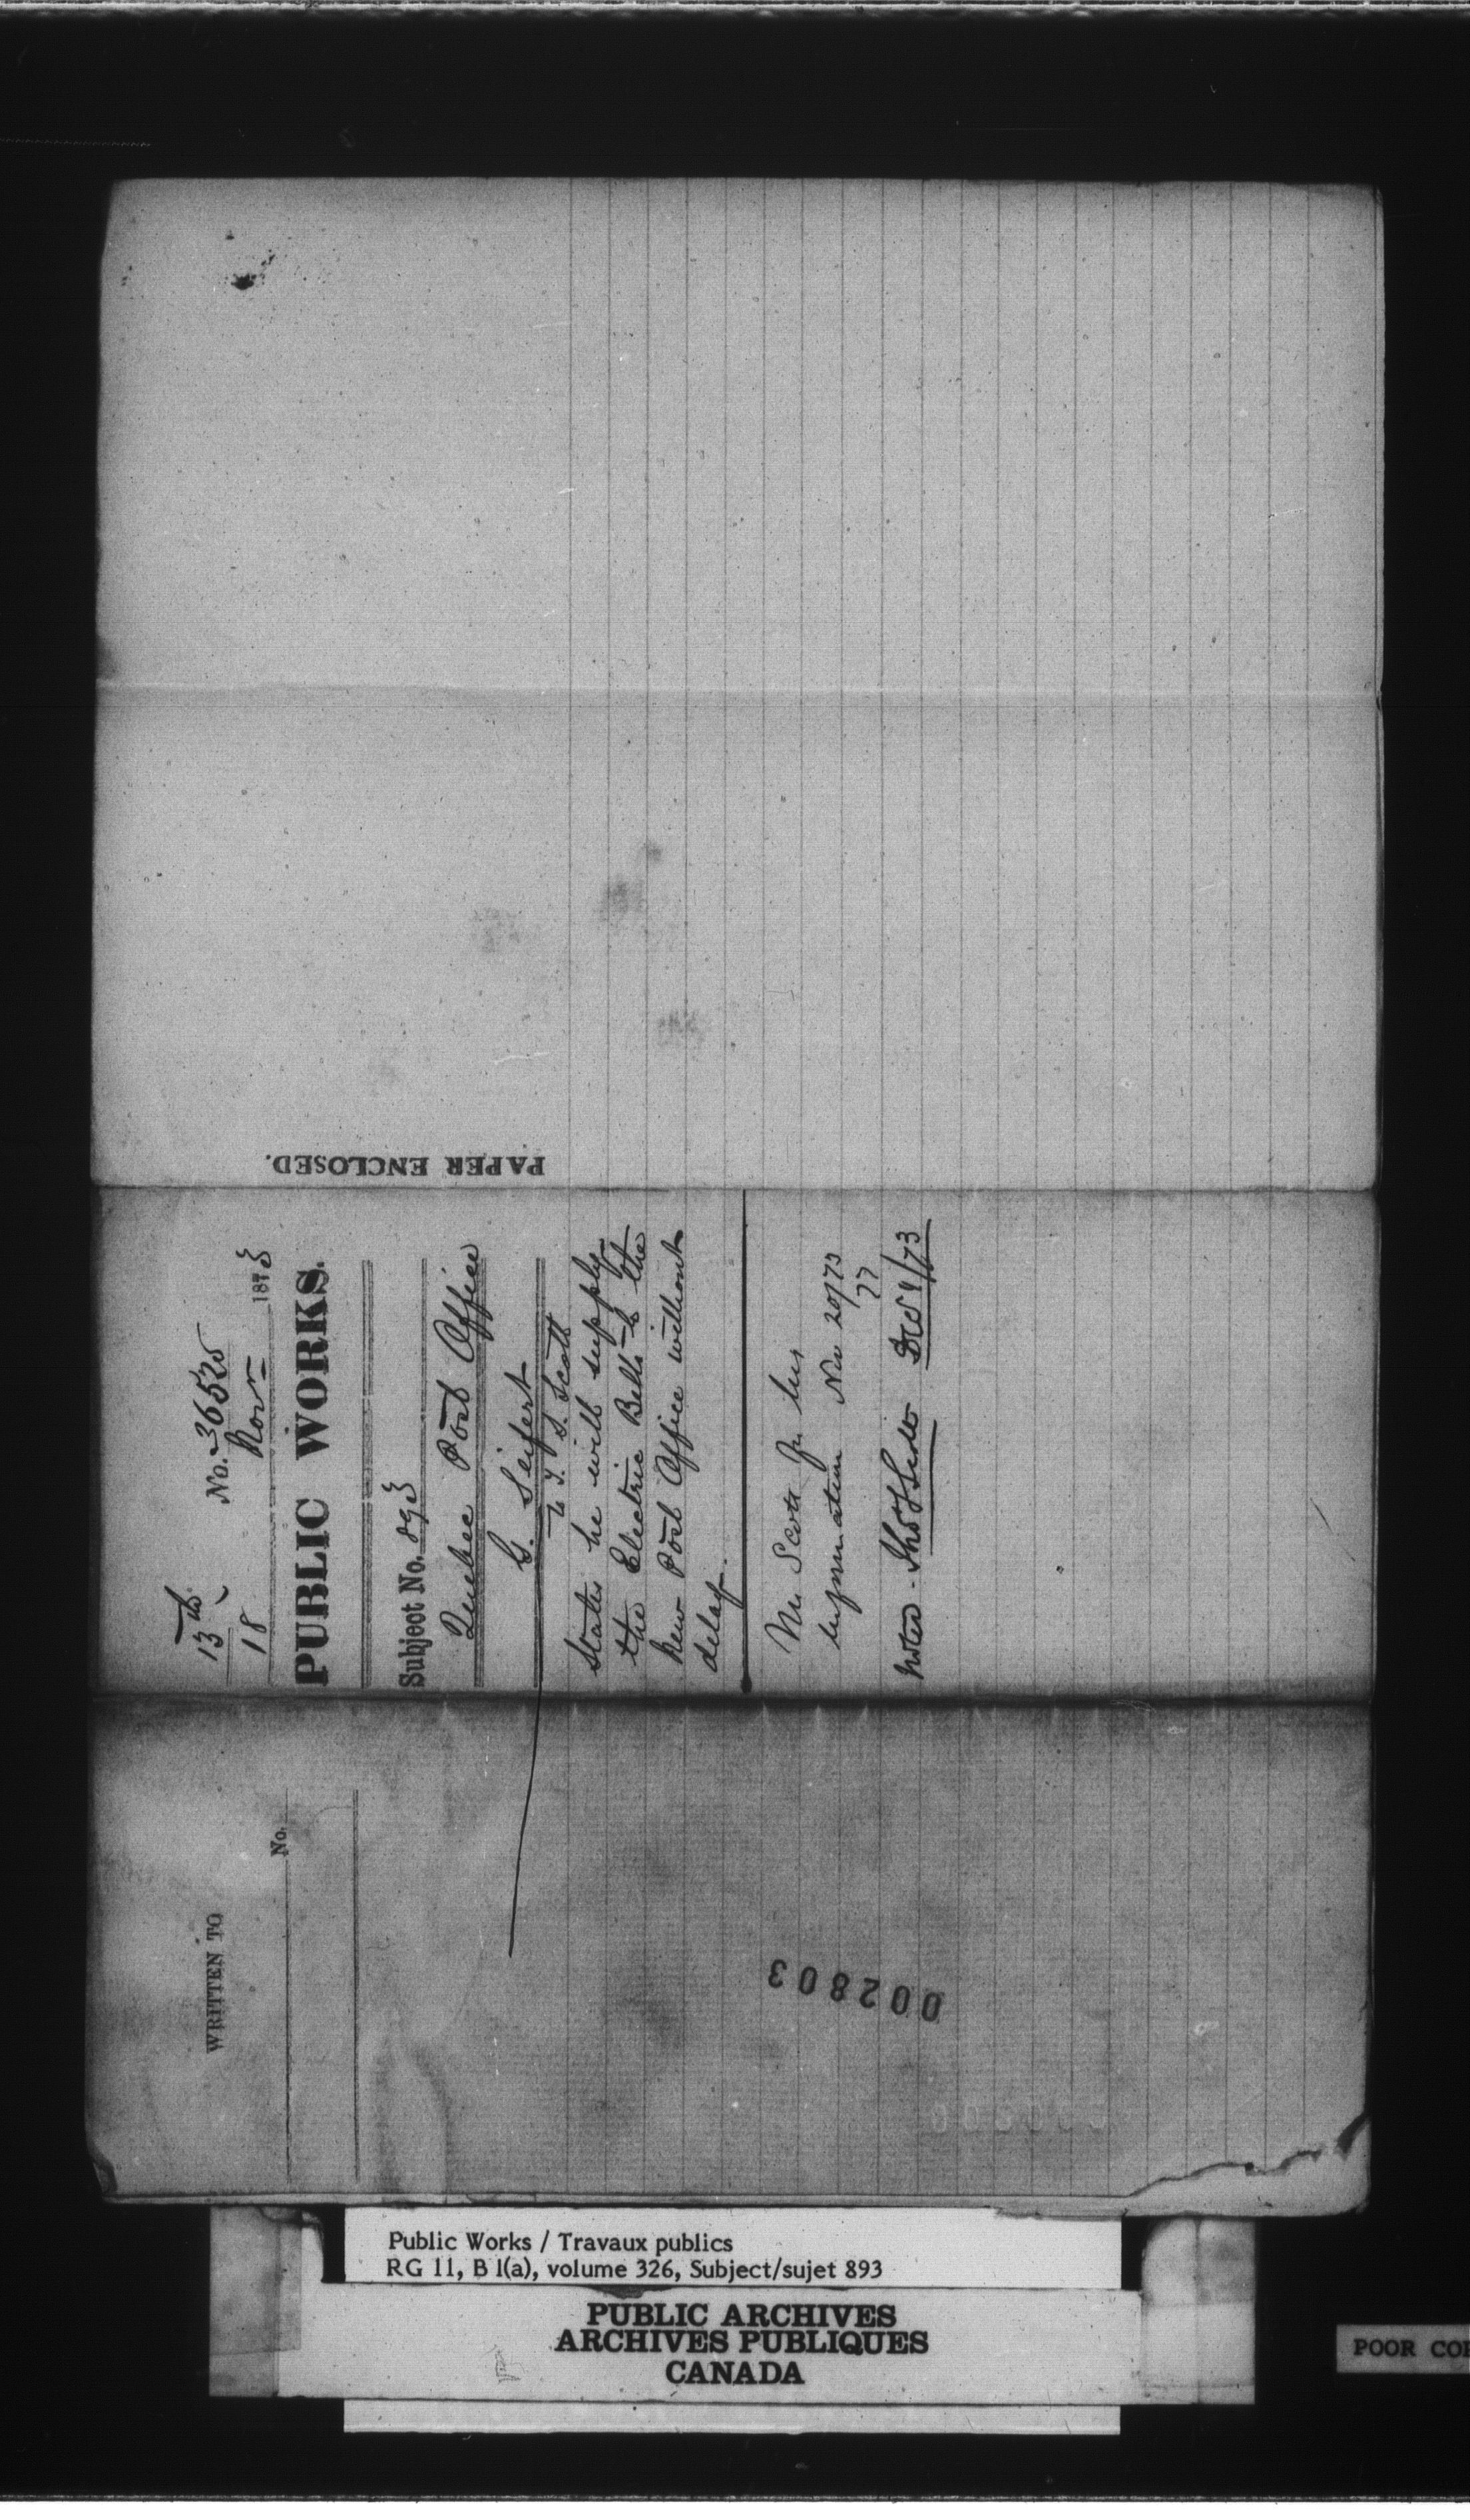 PAPER ENCLOSED.
13th No. 36525
18 Novr 1873
PUBLIC WORKS.
Subject No. 893
Quebec Post Office
G. Seifert
to T. S. Scott
States he will supply
the Electric Bells to the
New Post Office without
delay.
Mr Scott for his
information Nov 20/73
Noted - Thos S Scott Dec 1/73
WRITTEN TO
No.
002803
Public Works / Travaux publics
RG 11, B 1(a), volume 326, Subject/sujet 893
PUBLIC ARCHIVES
ARCHIVES PUBLIQUES
CANADA
POOR COP